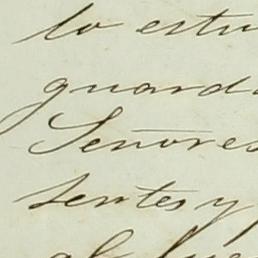 lo estu
guarda
Señores
sentes y
al Jue